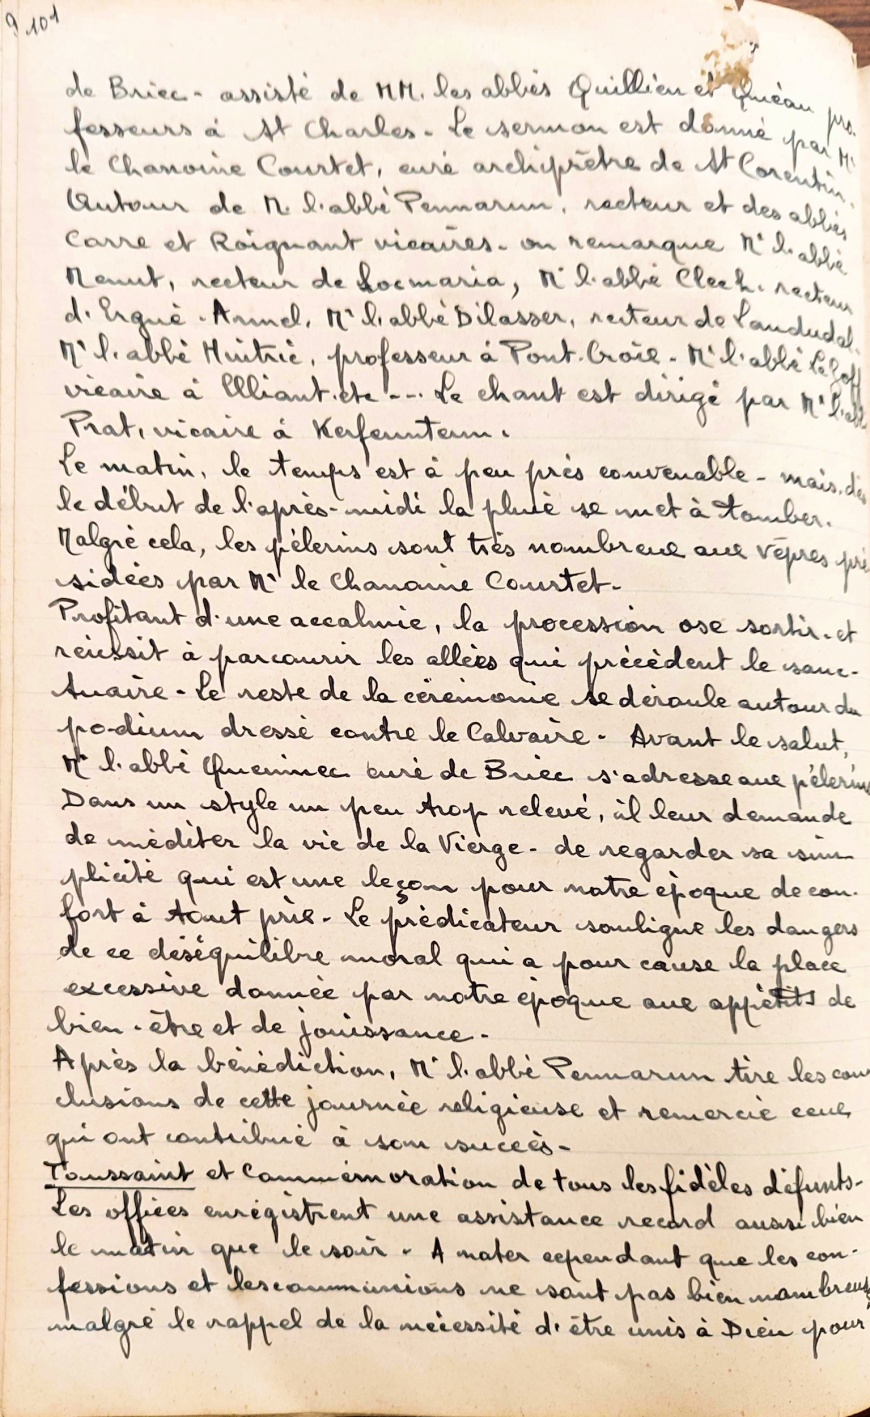 101
de Briec - assisté de MM. les abbés Quillien et Quéau pro-
fesseurs à St Charles - Le sermon est donné par Mr
le Chanoine Courtet, curé archiprêtre de St Corentin.
Autour de M. l'abbé Pennarun, recteur et des abbés
Carre et Roignant vicaires - on remarque Mr l'abbé
Menut, recteur de Locmaria, Mr l'abbé Clech, recteur
d'Ergué-Armel, Mr l'abbé Dilasser, recteur de Landudal,
Mr l'abbé Huitric, professeur à Pont-Croix - Mr l'abbé Le Goff
vicaire à Elliant, etc --- Le chant est dirigé par Mr l'abbé
Prat, vicaire à Kerfeunteun.
Le matin, le temps est à peu près convenable - mais, dès
le début de l'après-midi la pluie se met à tomber.
Malgré cela, les pèlerins sont très nombreux aux vêpres pré
sidées par Mr le Chanoine Courtet -
Profitant d'une accalmie, la procession ose sortir - et
réussit à parcourir les allées qui précèdent le sanc-
tuaire - Le reste de la cérémonie se déroule autour du
podium dressé contre le Calvaire - Avant le salut,
Mr l'abbé Queinnec curé de Briec s'adresse aux pèlerins
Dans un style un peu trop relevé, il leur demande
de méditer la vie de la Vierge - de regarder sa sim
plicité qui est une leçon pour notre époque de con-
fort à tout prix - Le prédicateur souligne les dangers
de ce déséquilibre moral qui a pour cause la place
excessive donnée par notre époque aux appétits de
bien-être et de jouissance -
Après la bénédiction, Mr l'abbé Pennarun tire les con
clusions de cette journée religieuse et remercie ceux
qui ont contribué à son succès -
Toussaint et Commémoration de tous les fidèles défunts -
Les offices enregistrent une assistance record aussi bien
le matin que le soir - A noter cependant que les con-
fessions et les communions ne sont pas bien nombreuses
malgré le rappel de la nécessité d'être unis à Dieu pour